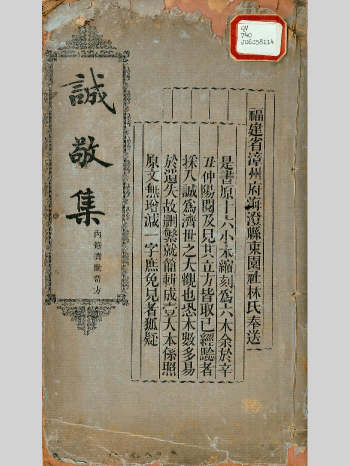 QV
740
誠敬集
內附清脫奇方
福建省漳州府海澄縣東園社林氏奉送
是書原十六小本縮刻為六本余於辛
丑仲陽閱及見其立方皆取已經驗者
採入誠為濟世之大觀也恐本數多易
於遺失故刪繁就簡輯成一大本係照
原文無增減一字庶免見者狐疑